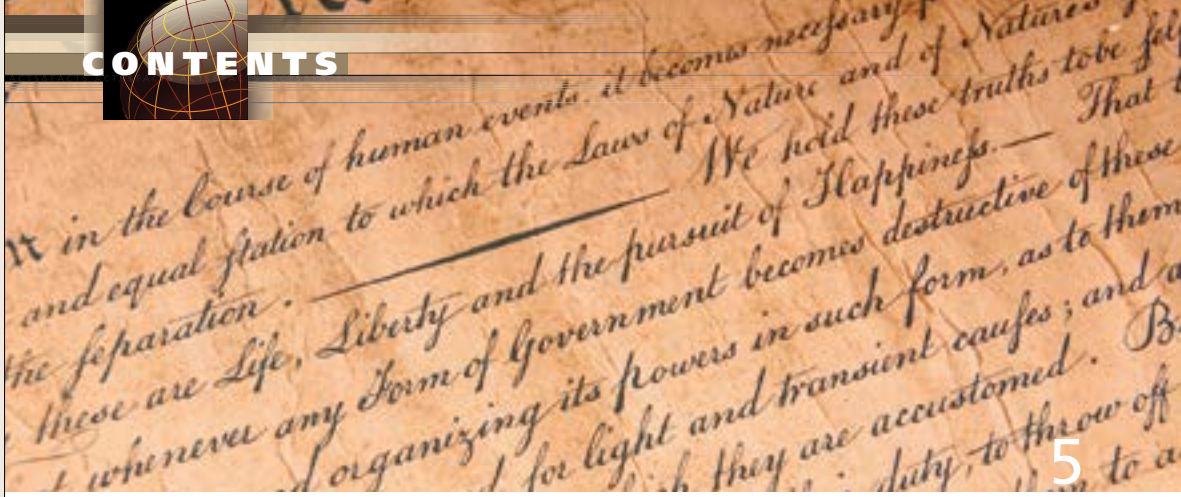 CONTENTS
in the Course of human events, it becomes necessary
and equal station to which the Laws of Nature and of Nature's
the separation. We hold these truths to be sel
these are Life, Liberty and the pursuit of Happiness.— That
whenever any Form of Government becomes destructive of these
organizing its powers in such form, as to them
for light and transient causes; and
they are accustomed. B
duty, to throw off
to a
5